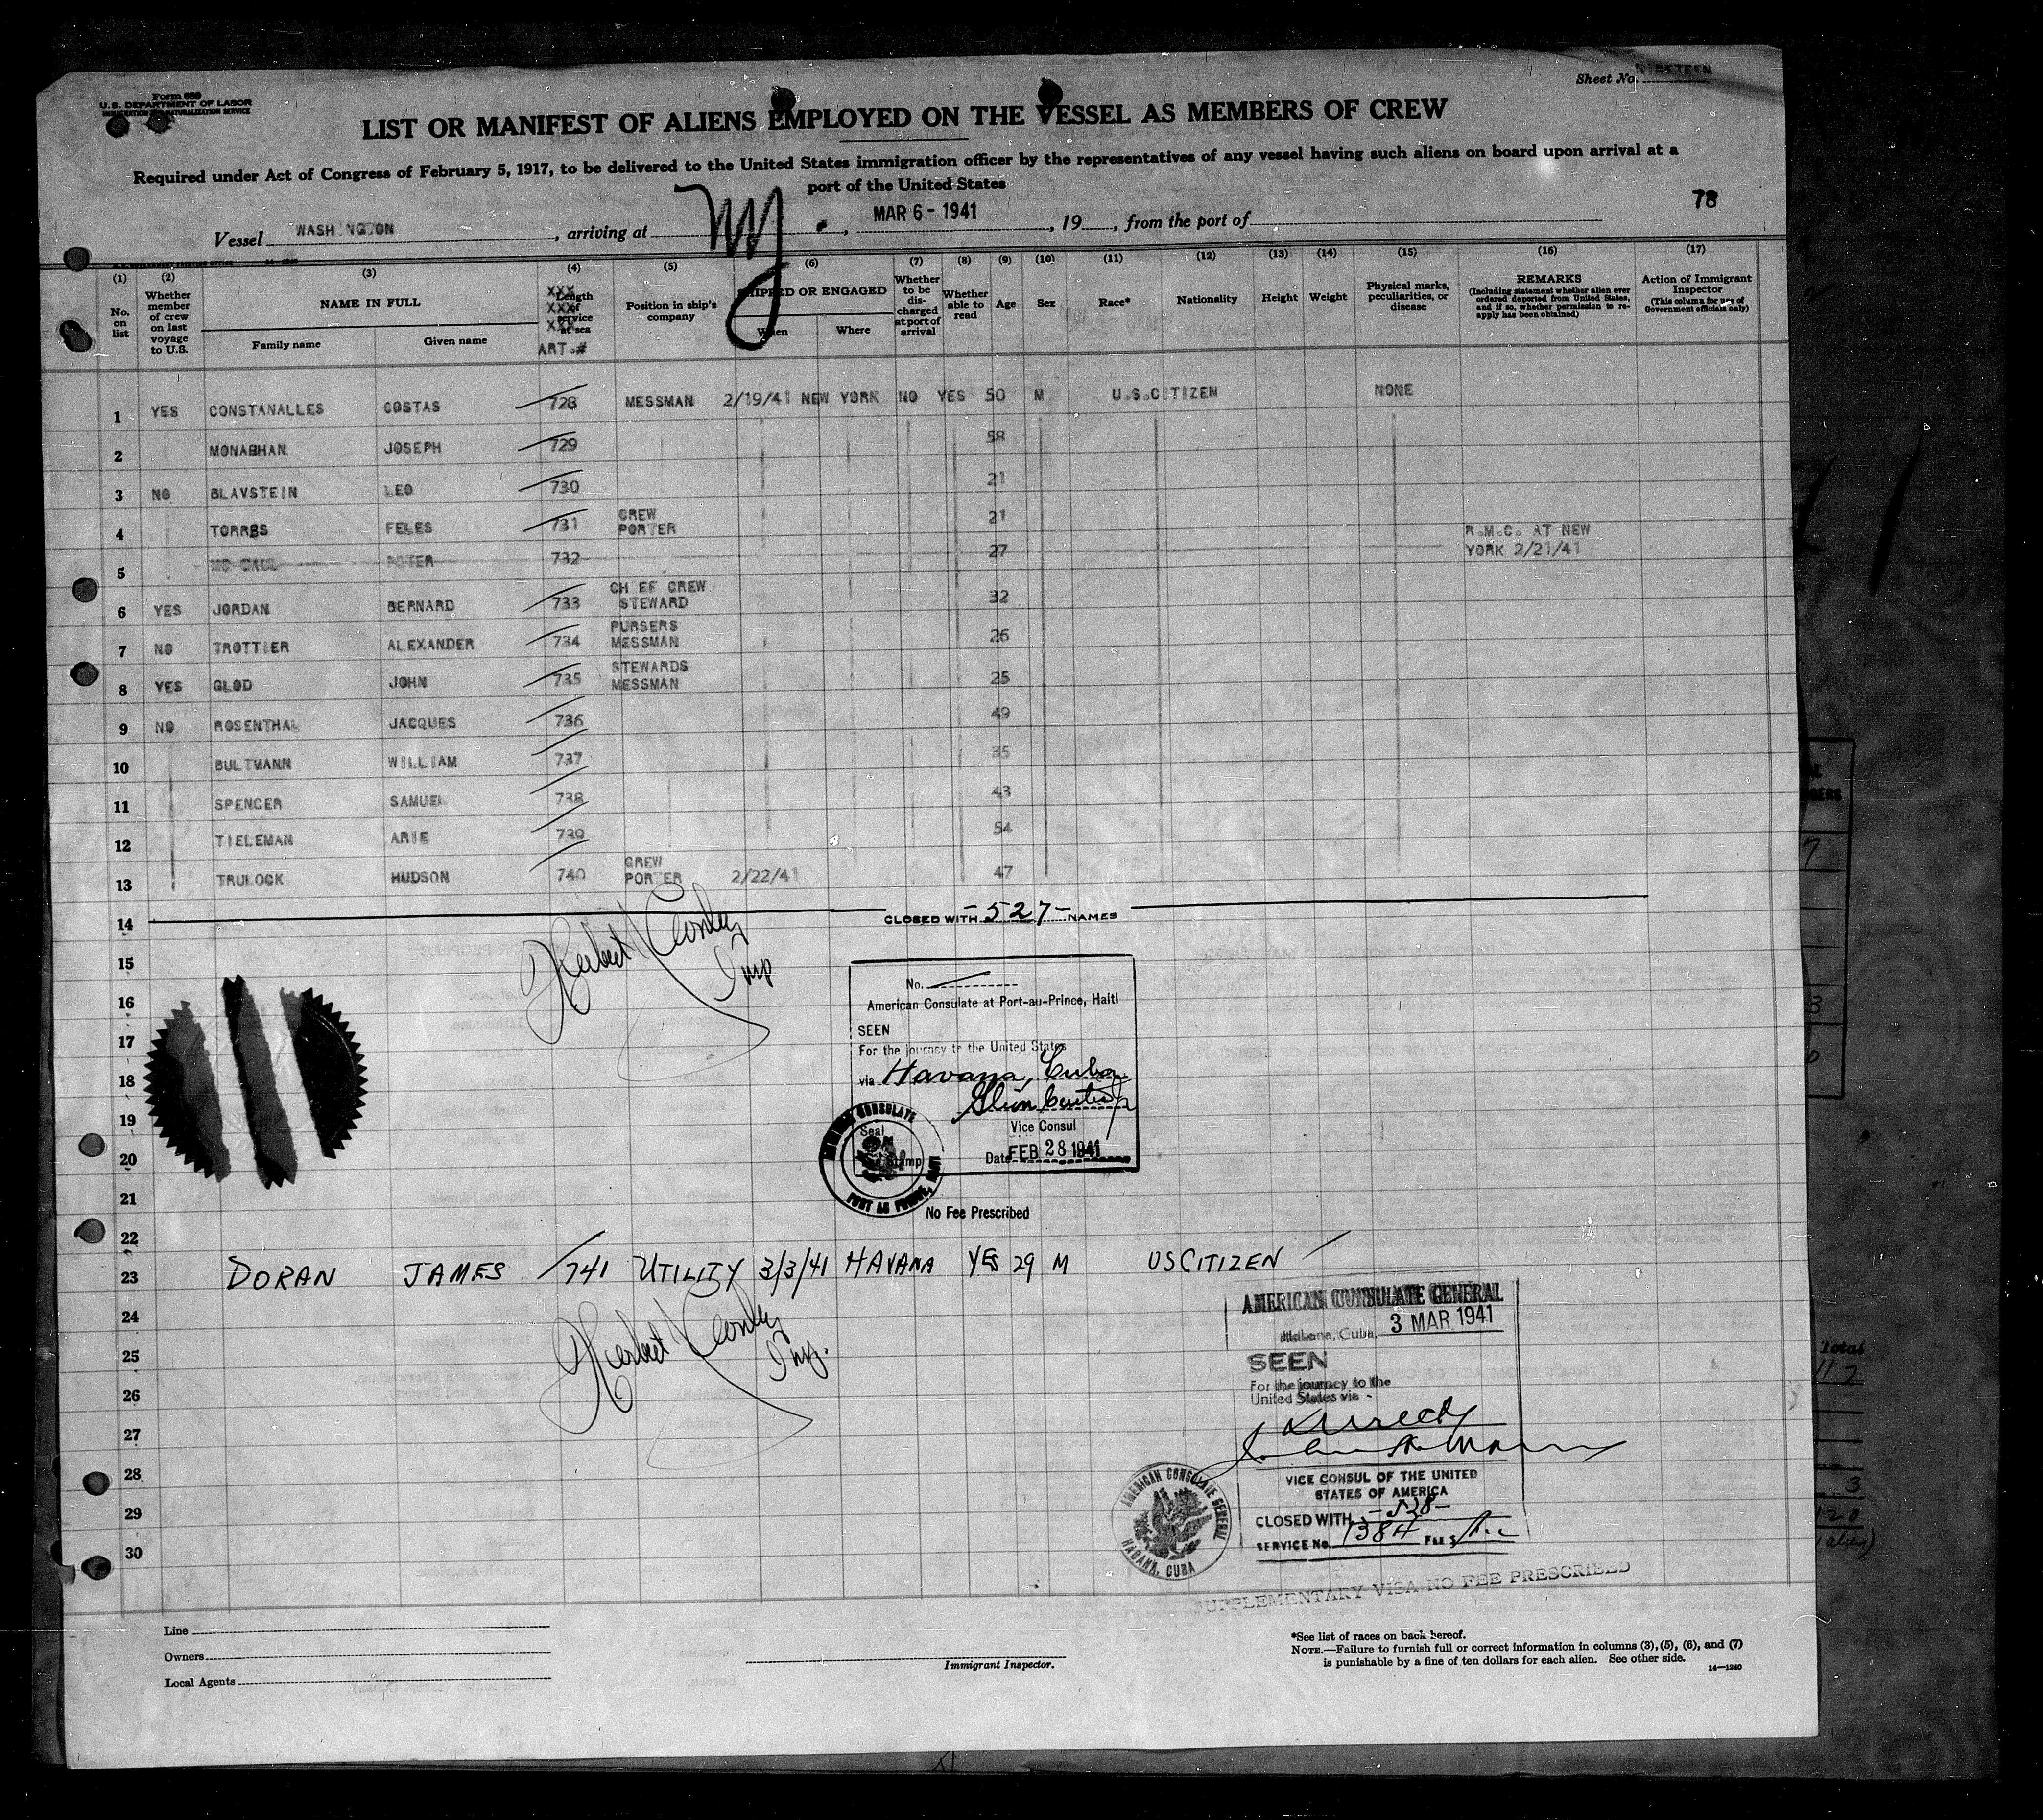 Sheet No. NINETEEN
Form 689
U.S. DEPARTMENT OF LABOR
IMMIGRATION AND NATURALIZATION SERVICE
LIST OR MANIFEST OF ALIENS EMPLOYED ON THE VESSEL AS MEMBERS OF CREW
Required under Act of Congress of February 5, 1917, to be delivered to the United States immigration officer by the representatives of any vessel having such aliens on board upon arrival at a
port of the United States
78
Vessel WASHINGTON, arriving at NY., MAR 6 - 1941, 19, from the port of
(1) (2) (3) (4) (5) (6) (7) (8) (9) (10) (11) (12) (13) (14) (15) (16) (17)
No. on list
Whether member of crew on last voyage to U.S.
NAME IN FULL
Family name
Given name
XXX Length XXX of service XXX at sea
ART.#
Position in ship's company
SHIPPED OR ENGAGED
When
Where
Whether to be discharged at port of arrival
Whether able to read
Age
Sex
Race*
Nationality
Height
Weight
Physical marks, peculiarities, or disease
REMARKS
(Including statement whether alien ever ordered deported from United States, and if so, whether permission to re-apply has been obtained)
Action of Immigrant Inspector
(This column for use of Government officials only)
1 YES CONSTANALLES COSTAS 728 MESSMAN 2/19/41 NEW YORK NO YES 50 M U.S.CITIZEN NONE
2 MONAGHAN JOSEPH 729 58
3 NO BLAVSTEIN LEO 730 21
4 TORRES FELES 731 CREW PORTER 21
5 PETER 732 27 R.M.C. AT NEW YORK 2/21/41
6 YES JORDAN BERNARD 733 CHIEF CREW STEWARD 32
7 NO TROTTIER ALEXANDER 734 PURSERS MESSMAN 26
8 YES GLOD JOHN 735 STEWARDS MESSMAN 25
9 NO ROSENTHAL JACQUES 736 49
10 BULTMANN WILLIAM 737 35
11 SPENCER SAMUEL 738 43
12 TIELEMAN ARIE 739 54
13 TRULOCK HUDSON 740 CREW PORTER 2/22/41 47
14 CLOSED WITH -527- NAMES
15
16
17
18
19
20
21
22
No.
American Consulate at Port-au-Prince, Haiti
SEEN
For the journey to the United States
via Havana, Cuba
Vice Consul
Seal
Stamp
Date FEB 28 1941
AMERICAN CONSULATE
PORT AU PRINCE, HAITI
No Fee Prescribed
23 DORAN JAMES 741 UTILITY 3/3/41 HAVANA YES 29 M US CITIZEN
24
25
26
27
28
29
30
AMERICAN CONSULATE GENERAL
Habana, Cuba, 3 MAR 1941
SEEN
For the journey to the
United States via
Direct
VICE CONSUL OF THE UNITED
STATES OF AMERICA
CLOSED WITH -528-
SERVICE No. 1384 Fee $
AMERICAN CONSULATE GENERAL
HABANA, CUBA
SUPPLEMENTARY VISA NO FEE PRESCRIBED
Line
Owners
Local Agents
Immigrant Inspector.
*See list of races on back hereof.
NOTE.—Failure to furnish full or correct information in columns (3), (5), (6), and (7)
is punishable by a fine of ten dollars for each alien. See other side.
14—1240
Total
112
3
120